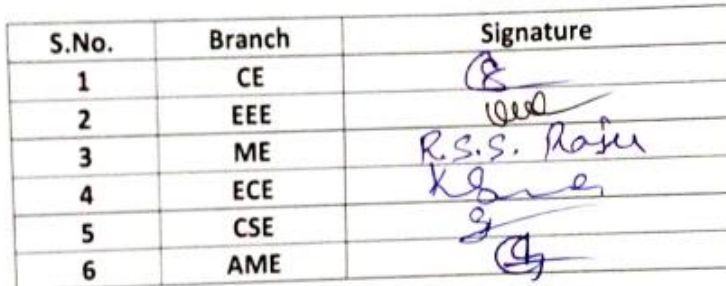 S.No. Branch Signature
1 CE
2 EEE
3 ME R.S.S. Raju
4 ECE
5 CSE
6 AME